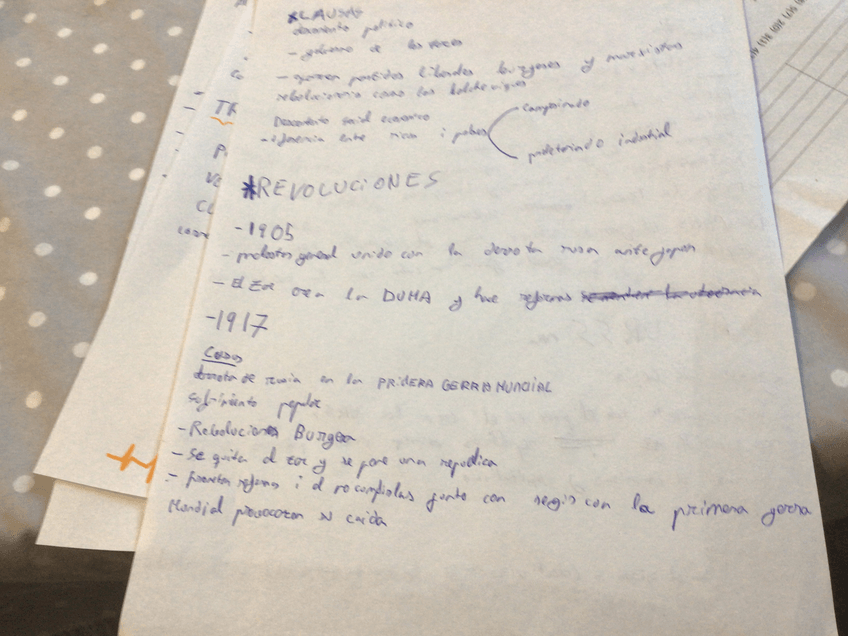 *CLAUSAS
descontento político
- gobierno de los
- aparecen partidos liberales burgeses y marxistas
rebolucionaria como los bolcheviques
Descontento social economico
- diferencia entre ricos i pobres
campesinado
proletariado industrial
*REVOLUCIONES
-1905
- protestas general unido con la derrota rusa ante japon
- El Zar crea la DUMA y hace reformas
-1917
Causas
derrota de rusia en la PRIMERA GERRA MUNDIAL
sufrimiento popular
- Rebolucion Burgesa
- Se quita el zar y se pone una republica
- reformas i el no cumplirlas junto con seguir con la primera gerra
Mundial provocaron su caida
TR
P
CL